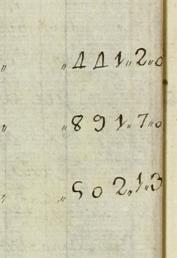 〃 〃 441〃2〃0
〃 〃 891〃7〃0
〃 〃 502〃1〃3